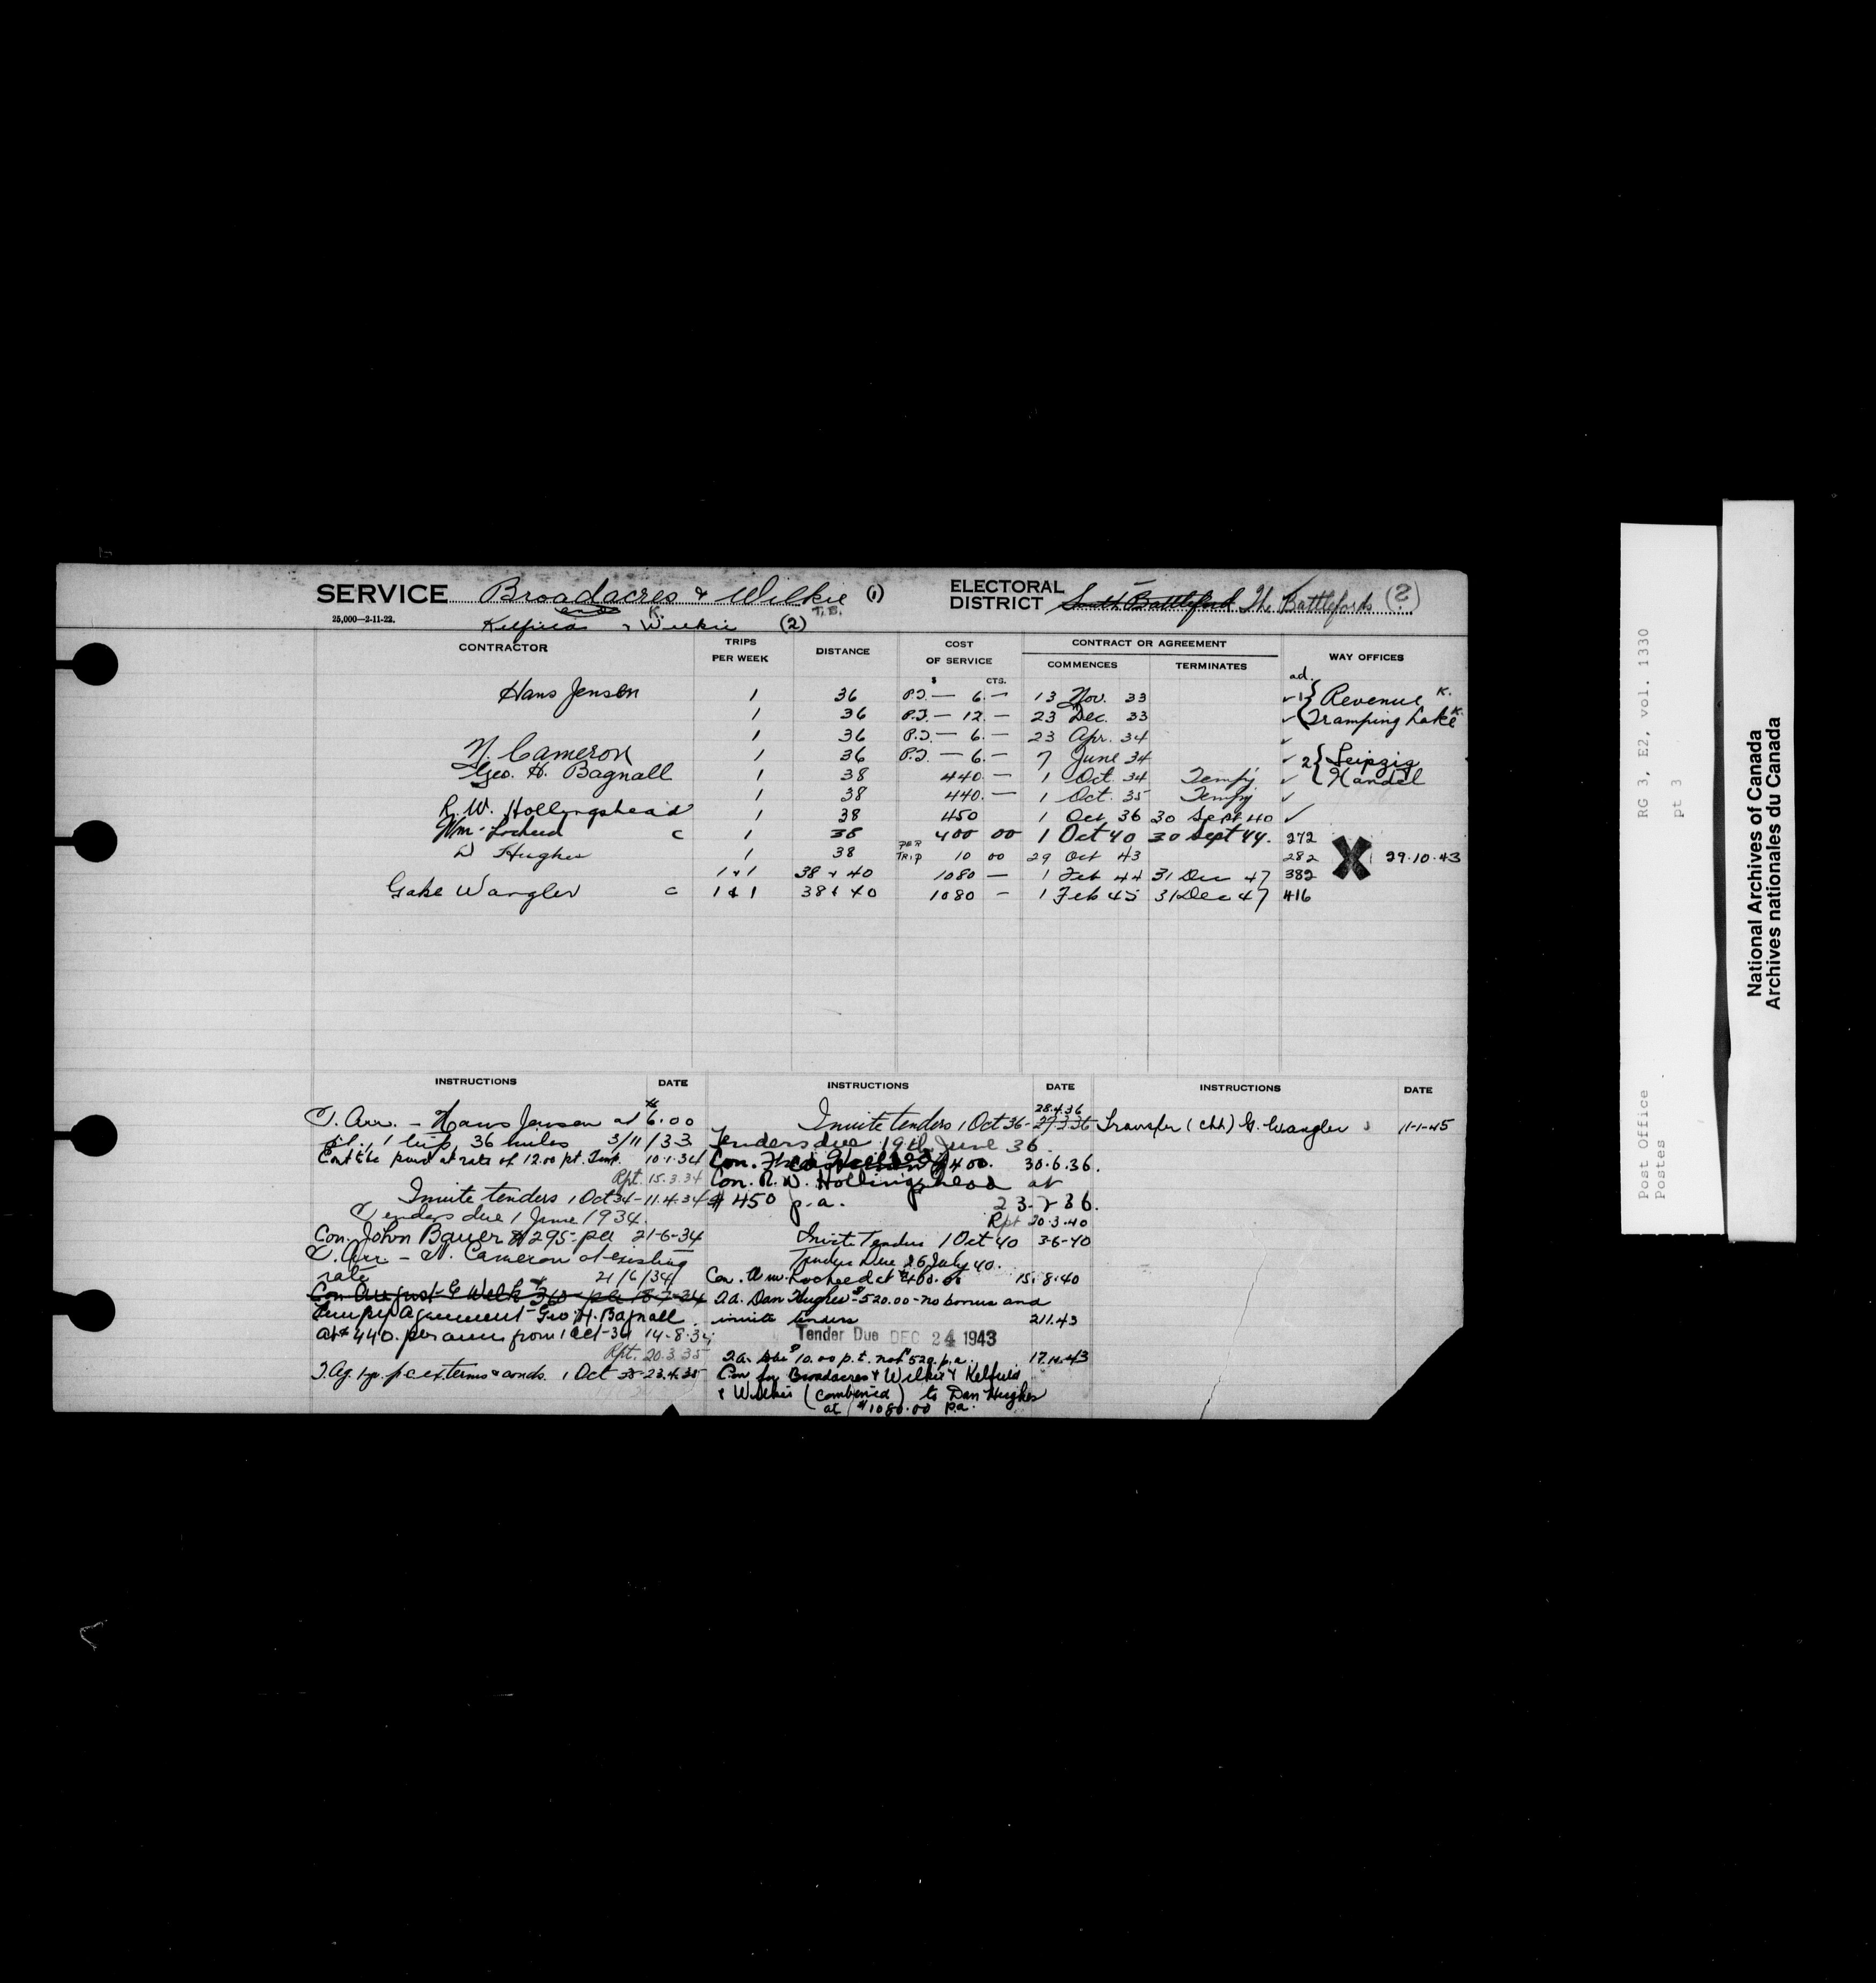 SERVICE Broadacres & Wilkie (1) T.B.
and K.
Kelfield & Wilkie (2)
25,000—2-11-22.
ELECTORAL DISTRICT South Battleford The Battlefords (2)
CONTRACTOR TRIPS PER WEEK DISTANCE COST OF SERVICE CONTRACT OR AGREEMENT WAY OFFICES
$ CTS. COMMENCES TERMINATES ad.
Hans Jensen 1 36 P.T. — 6. — 13 Nov. 33 ✓ 1 { Revenue K.
1 36 P.T. — 12. — 23 Dec. 33 ✓ Tramping Lake K.
1 36 P.T. — 6. — 23 Apr. 34 ✓
N. Cameron 1 36 P.T. — 6. — 7 June 34 ✓ 2 { Leipzig
Geo. H. Bagnall 1 38 440. — 1 Oct. 34 Tempy ✓ Handel
1 38 440. — 1 Oct. 35 Tempy ✓
R. W. Hollingshead 1 38 450 1 Oct 36 30 Sept 40 ✓
Wm. Locheed C 1 38 400 00 1 Oct 40 30 Sept 44. 272
D Hughes 1 38 PER TRIP 10 00 29 Oct 43 282 X 29.10.43
1 & 1 38 & 40 1080 — 1 Feb 44 31 Dec 47 382
Gabe Wangler C 1 & 1 38 & 40 1080 — 1 Feb 45 31 Dec 47 416
INSTRUCTIONS DATE
T. Arr. — Hans Jensen at $6.00
p.t., 1 trip, 36 miles 3/11/33
Cont to be paid at rate of 12.00 pt. Temp. 10.1.34
Rpt. 15.3.34
Invite tenders 1 Oct 34 - 11.4.34
Tenders due 1 June 1934.
Con. John Bauer $295 - pa 21-6-34
T. Arr — N. Cameron at existing
rate 21/6/34
Con August G Welk $360 - pa 18-7-34
Tempy Agreement - Geo H. Bagnall
at $440. per ann from 1 Oct - 34 14-8-34
Rpt. 20.3.35
T. Ag. 1 yr. p ex. terms & conds. 1 Oct 35 - 23.4.35
INSTRUCTIONS DATE
28.4.36
Invite tenders 1 Oct 36 - 27.3.36
Tenders due 19th June 36.
Con. $400. 30.6.36.
Con. R. W. Hollingshead at
$450 p.a. 23-7-36.
Rpt 20.3.40
Invite Tenders 1 Oct 40 3-6-40
Tenders Due 26 July 40.
Con. Wm. Locheed at $400.00 15.8.40
T.A. Dan Hughes $520.00 - no bonus and
invite tenders 2.11.43
Tender Due DEC 24 1943
T.A. $10.00 p.t. not $520. p.a. 17.11.43
Con for Broadacres & Wilkie & Kelfield
& Wilkie (combined) to Dan Hughes
at $1080.00 p.a.
INSTRUCTIONS DATE
Transfer (chh) G. Wangler 11-1-45
RG 3, E2, vol. 1330
pt 3
Post Office
Postes
National Archives of Canada
Archives nationales du Canada